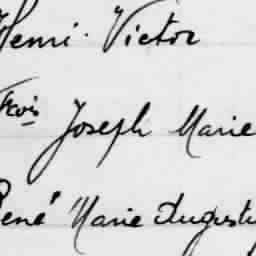 Henri. Victor
Fcois Joseph Marie
René Marie Augustin